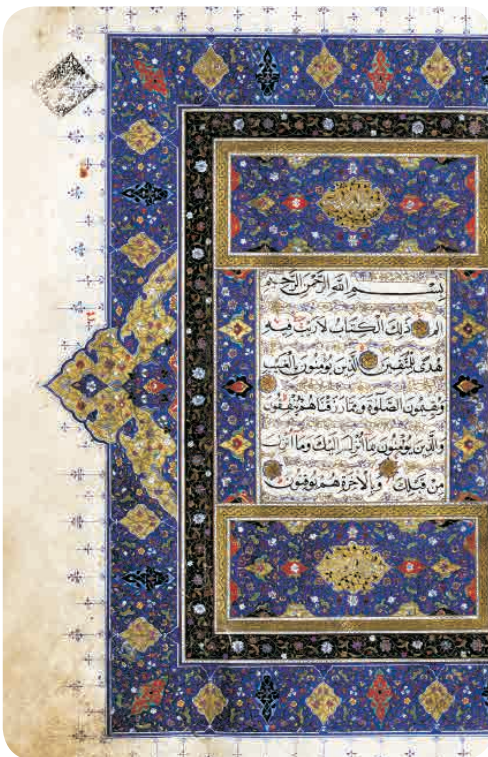 بِسْمِ اللَّهِ الرَّحْمَنِ الرَّحِيمِ
الم ذَلِكَ الْكِتَابُ لَا رَيْبَ فِيهِ
هُدًى لِلْمُتَّقِينَ الَّذِينَ يُؤْمِنُونَ بِالْغَيْبِ
وَيُقِيمُونَ الصَّلَوٰةَ وَمِمَّا رَزَقْنَاهُمْ يُنْفِقُونَ
وَالَّذِينَ يُؤْمِنُونَ بِمَا أُنْزِلَ إِلَيْكَ وَمَا أُنْزِلَ
مِنْ قَبْلِكَ وَبِالْآخِرَةِ هُمْ يُوقِنُونَ